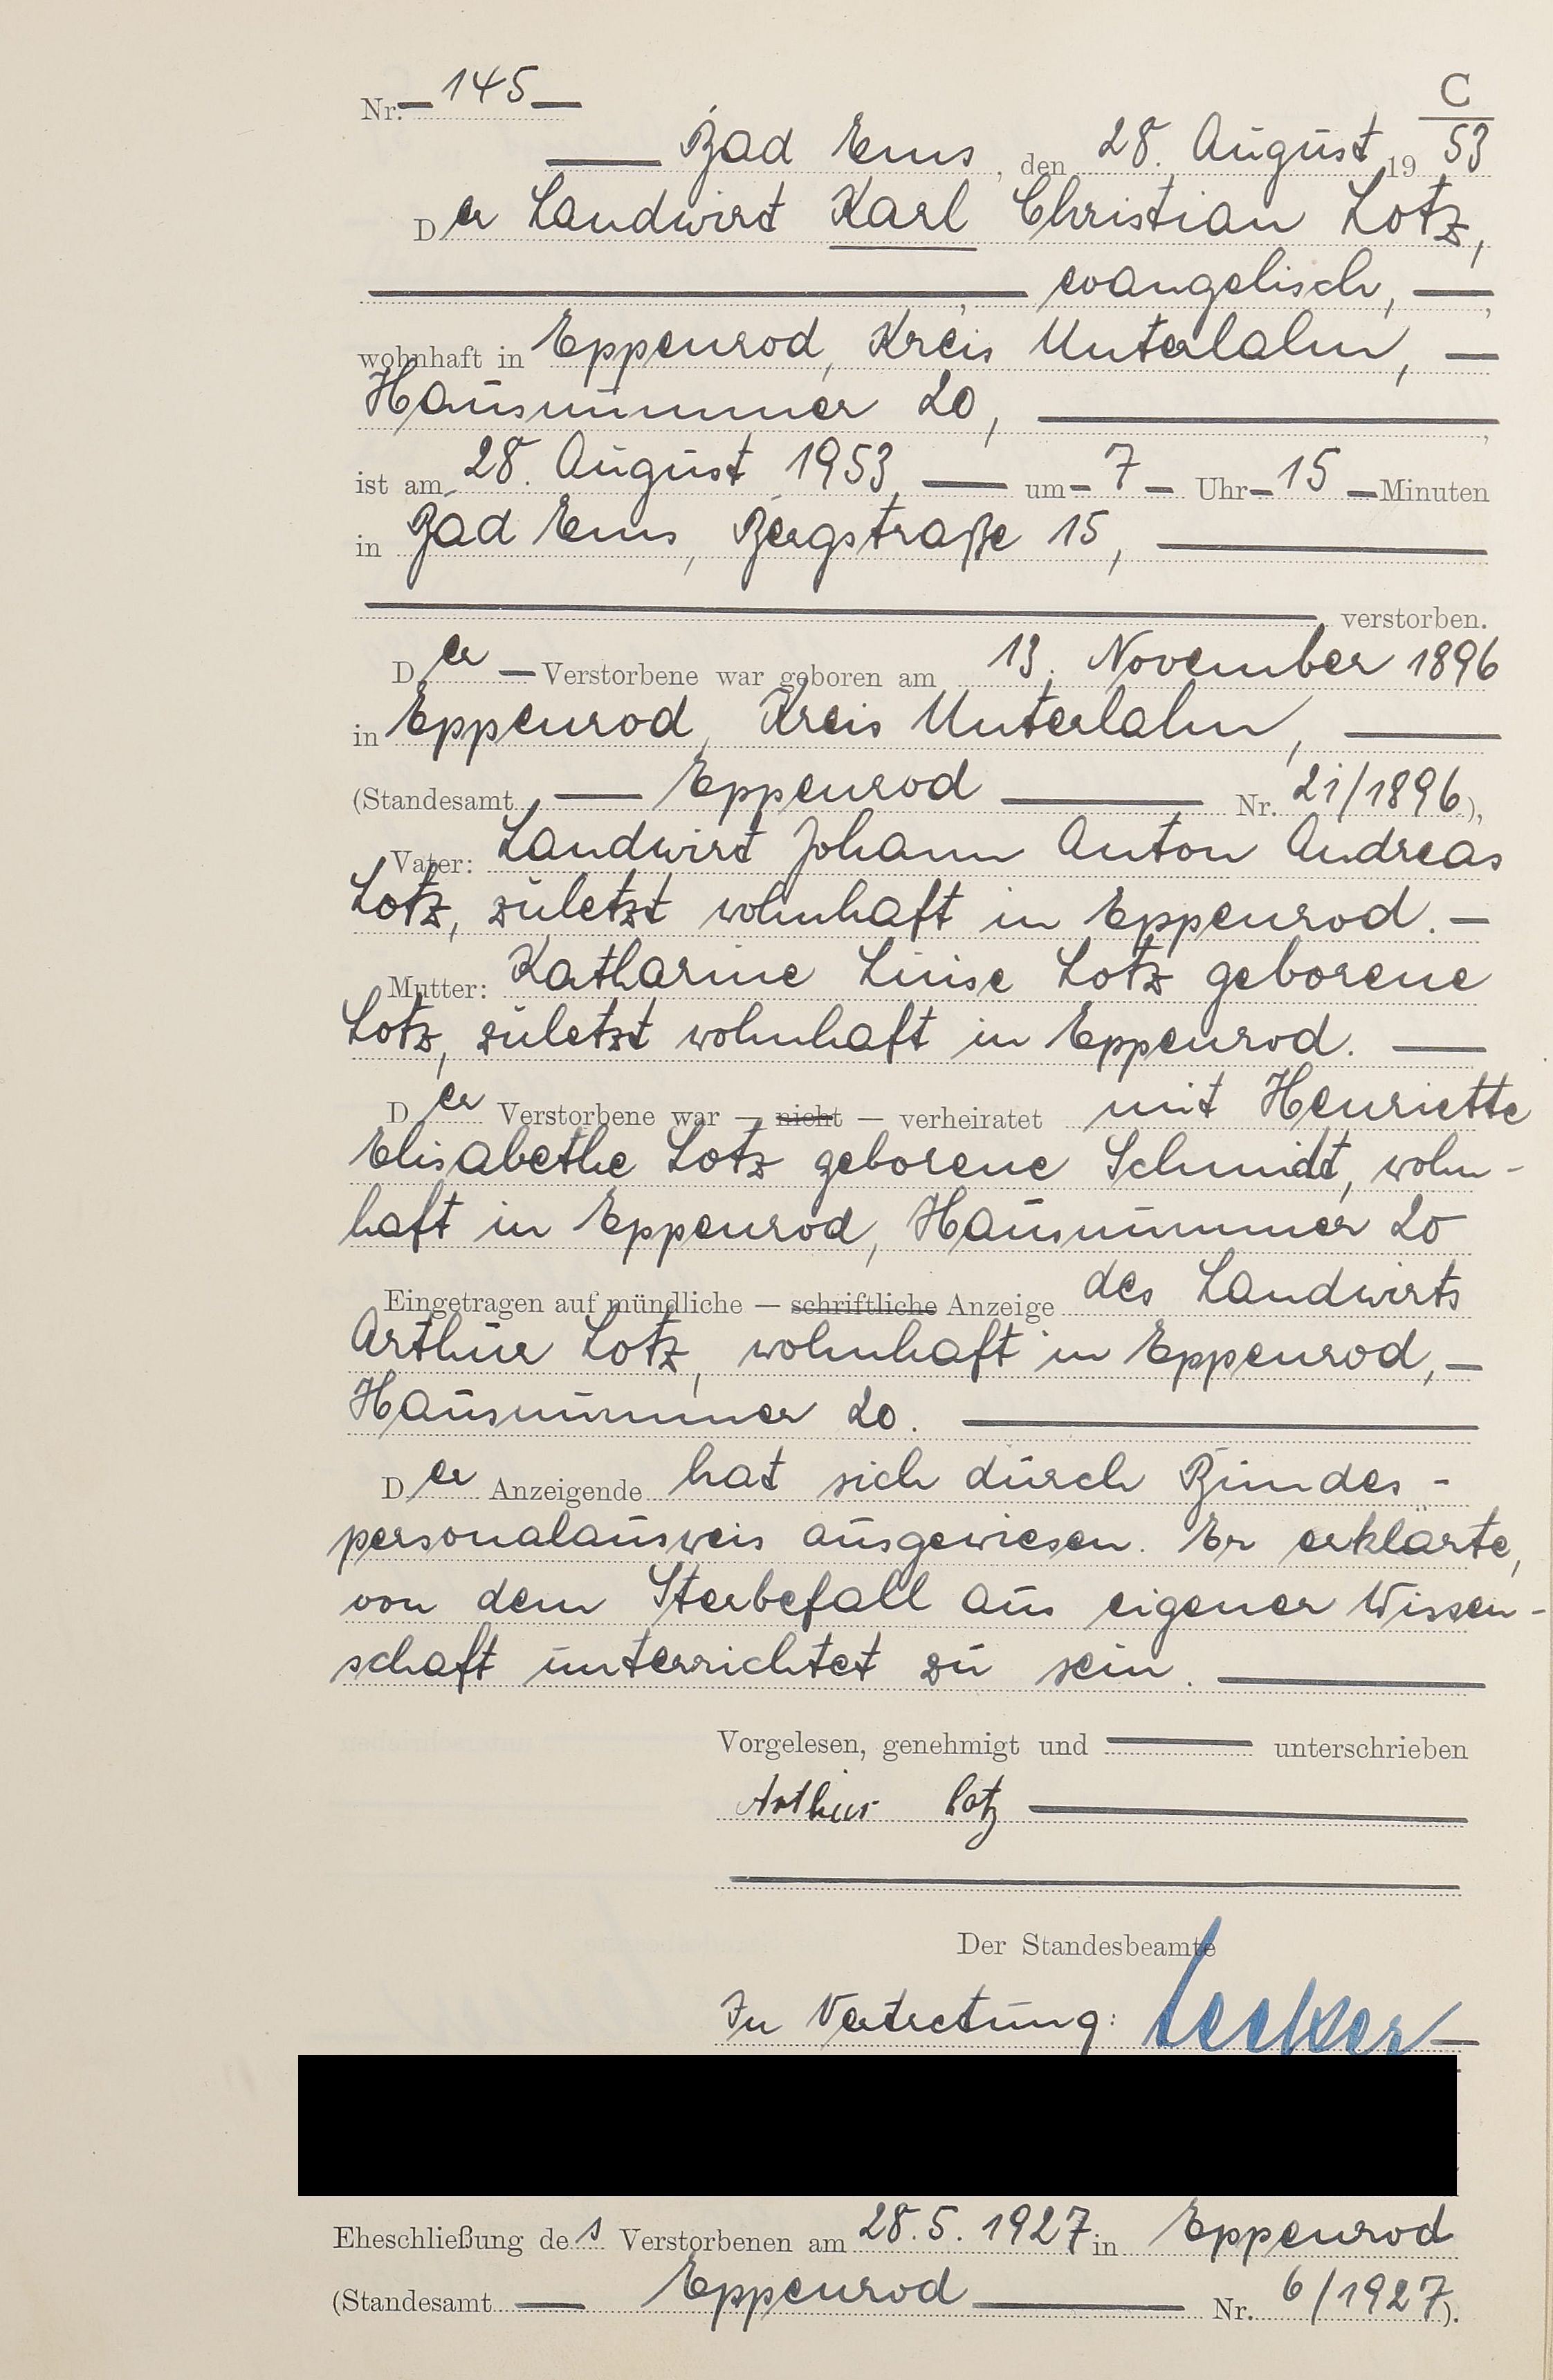 C
Nr. 145
Bad Ems, den 28. August 19 53
Der Landwirt Karl Christian Lotz,
evangelisch,
wohnhaft in Eppenrod, Kreis Unterlahn,
Hausnummer 20,
ist am 28. August 1953 um 7 Uhr 15 Minuten
in Bad Ems, Bergstraße 15,
verstorben.
Der Verstorbene war geboren am 13. November 1896
in Eppenrod, Kreis Unterlahn,
(Standesamt Eppenrod Nr. 21/1896),
Vater: Landwirt Johann Anton Andreas
Lotz, zuletzt wohnhaft in Eppenrod.
Mutter: Katharine Luise Lotz geborene
Lotz, zuletzt wohnhaft in Eppenrod.
Der Verstorbene war — nicht — verheiratet mit Henriette
Elisabethe Lotz geborene Schmidt, wohn-
haft in Eppenrod, Hausnummer 20
Eingetragen auf mündliche — schriftliche Anzeige des Landwirts
Arthur Lotz, wohnhaft in Eppenrod,
Hausnummer 20.
Der Anzeigende hat sich durch Bundes-
personalausweis ausgewiesen. Er erklärte,
von dem Sterbefall aus eigener Wissen-
schaft unterrichtet zu sein.
Vorgelesen, genehmigt und unterschrieben
Arthur Lotz
Der Standesbeamte
In Vertretung:
Eheschließung des Verstorbenen am 28.5.1927 in Eppenrod
(Standesamt Eppenrod Nr. 6/1927).